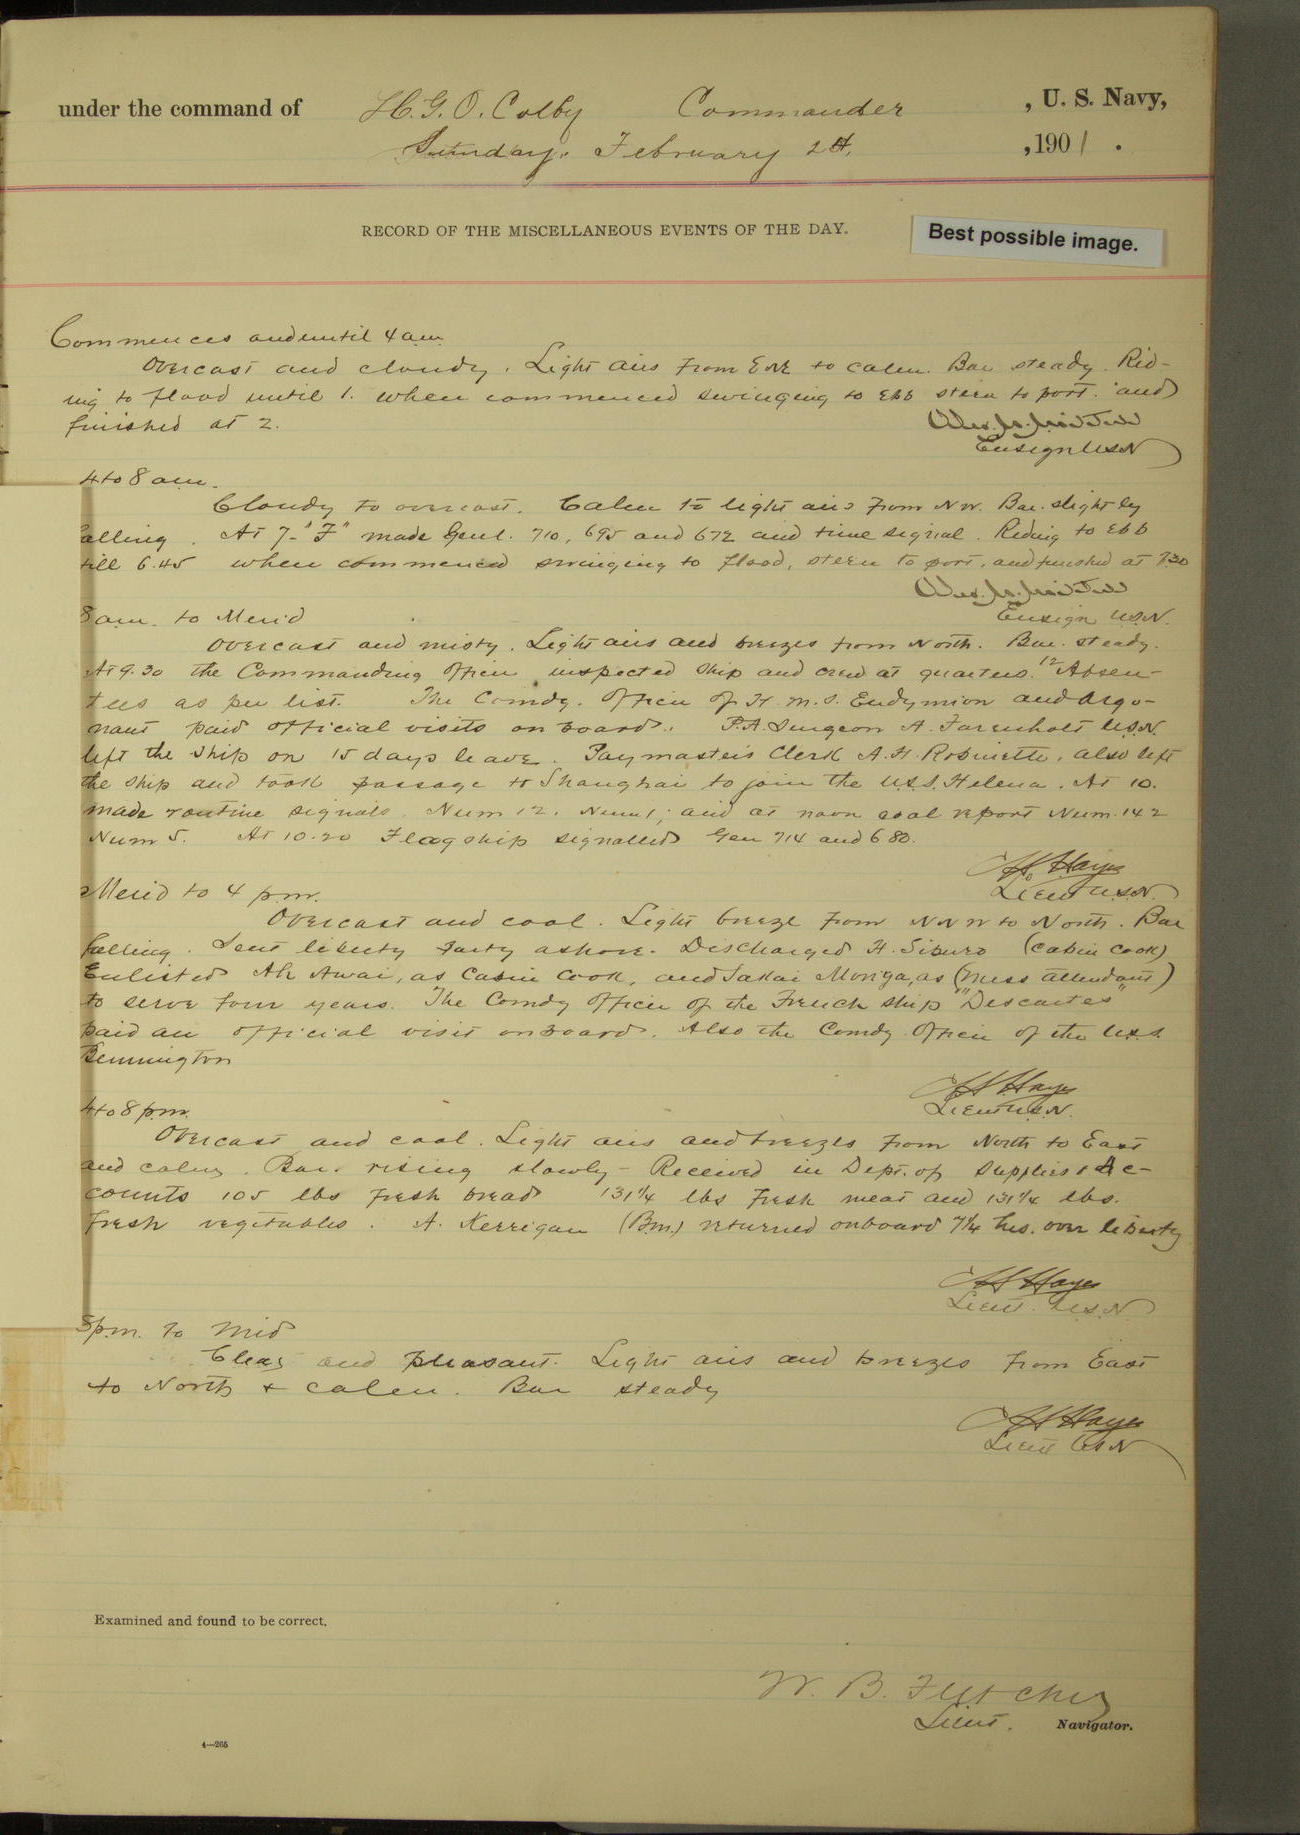 under the command of H. G. O. Colby Commander , U. S. Navy,
Sunday, February 24, 1901 .
RECORD OF THE MISCELLANEOUS EVENTS OF THE DAY.
Best possible image.
Commences and until 4 a.m.
Overcast and cloudy. Light airs from ENE to calm. Bar steady. Rid-
ing to flood until 1. when commenced swinging to ebb stern to port. and
finished at 2.
Ensign USN
4 to 8 am.
Cloudy to overcast. Calm to light airs from NW. Bar. slightly
falling. At 7- "F" made Genl. 710, 695 and 672 and time signal. Riding to ebb
till 6.45 when commenced swinging to flood, stern to port, and finished at 7.30
Ensign U.S.N.
8 a.m. to Merid
Overcast and misty. Light airs and breezes from North. Bar. steady.
At 9.30 the Commanding Officer inspected ship and crew at quarters. 12 Absen-
tees as per list. The Comdg. Officer of H.M.S. Endymion and Argo-
naut paid official visits on board. P.A. Surgeon A. Farenholt U.S.N.
left the ship on 15 days leave. Paymaster's Clerk A. H. Robinette, also left
the ship and took passage to Shanghai to join the U.S.S. Helena. At 10.
made routine signals Num 12. Num 1, and at noon coal report Num. 142
Num 5. At 10.20 Flagship signalled Gen 714 and 680.
Hayes
Lieut U.S.N.
Merid to 4 p.m.
Overcast and cool. Light breeze from NNW to North. Bar
falling. Sent liberty party ashore. Discharged H. (Cabin Cook)
Enlisted Ah Awai, as Cabin Cook, and Sakai Moriya, as (Mess attendant)
to serve four years. The Comdg Officer of the French ship "Descartes"
paid an official visit on board. Also the Comdg. Officer of the U.S.S.
Bennington
Hayes
Lieut U.S.N.
4 to 8 p.m.
Overcast and cool. Light airs and breezes from North to East
and calm. Bar. rising slowly - Received in Dept. of Supplies & Ac-
counts 105 lbs fresh bread 131 1/4 lbs fresh meat and 131 1/4 lbs.
fresh vegetables. A. Kerrigan (Bm.) returned onboard 7 1/4 hrs. over liberty
Hayes
Lieut. U.S.N
8 p.m. to Mid
Clear and pleasant. Light airs and breezes from East
to North & calm. Bar steady
Hayes
Lieut USN
Examined and found to be correct.
W. B. Fletcher
Lieut. Navigator.
4—265